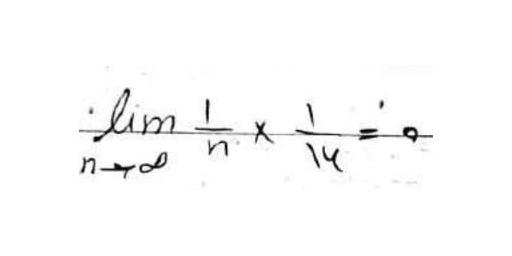 lim n→∞ 1/n × 1/14 = 0